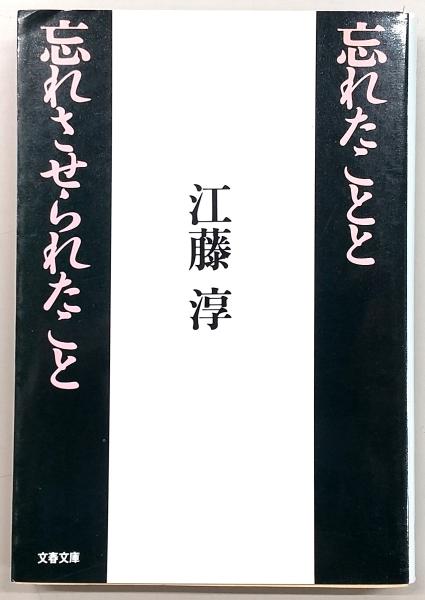 忘れたことと
忘れさせられたこと
江藤 淳
文春文庫